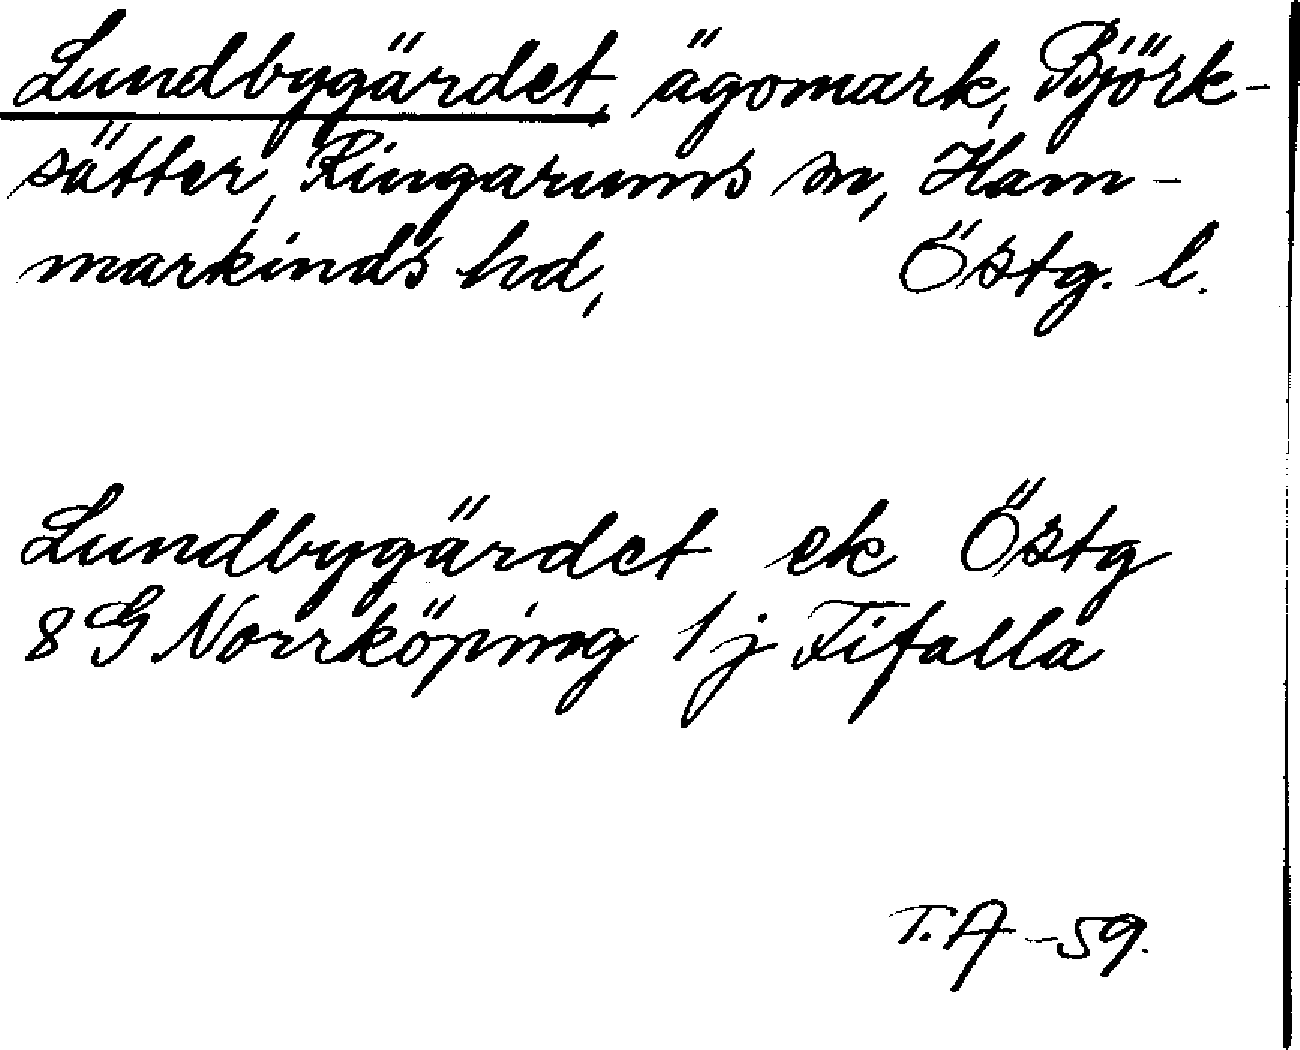 Lundbygärdet, ägomark, Björk-
sätter, Ringarums sn, Ham-
markinds hd, Östg. l.
Lundbygärdet ek Östg
8 G Norrköping 1 j Fifalla
T.A -59.